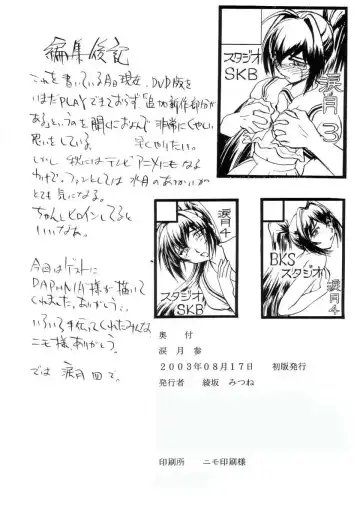 編集後記
これを書いている今日現在、DVD版を
いまだPLAYできておらず「追加新作部分が
あるというのを聞くにおよんで非常にくやしい
思いをしている。 早くやりたい。
しかし 秋にはテレビアニメにもなる
わけで、ファンとしては水月のあつかいが
とても気になる。
ちゃんとヒロインしてると
いいなぁ。
今回はゲストに
DAPHNIA様が描いて
くれました。ありがとう。
いろいろ手伝ってくれたみんな
ニモ様ありがとう。
では 涙月 四 で。
スタジオ
SKB
涙月3
涙月4
スタジオ
SKB
BKS
スタジオ
涙月4
奥 付
涙 月 参
2003年08月17日 初版発行
発行者 綾坂 みつね
印刷所 ニモ印刷様